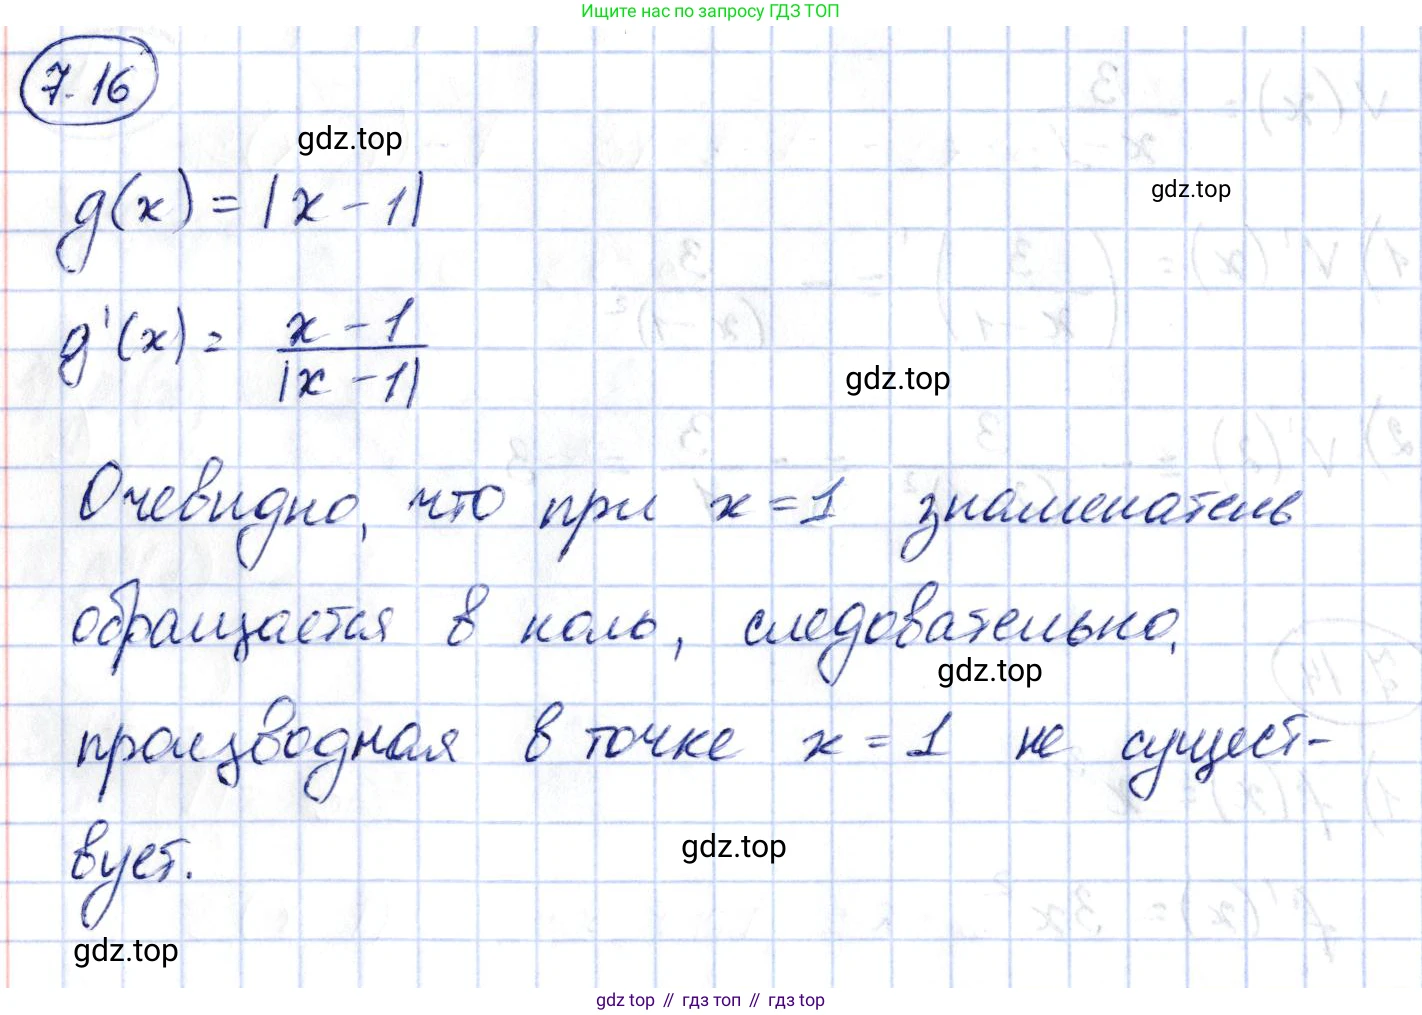 Ищите нас по запросу ГДЗ ТОП
7.16
gdz.top
g(x) = |x - 1|
gdz.top
g'(x) = (x - 1) / |x - 1|
gdz.top
Очевидно, что при x = 1 знаменатель
обращается в ноль, следовательно,
gdz.top
производная в точке x = 1 не сущест-
вует.
gdz.top
gdz.top
gdz top // гдз топ // гдз top